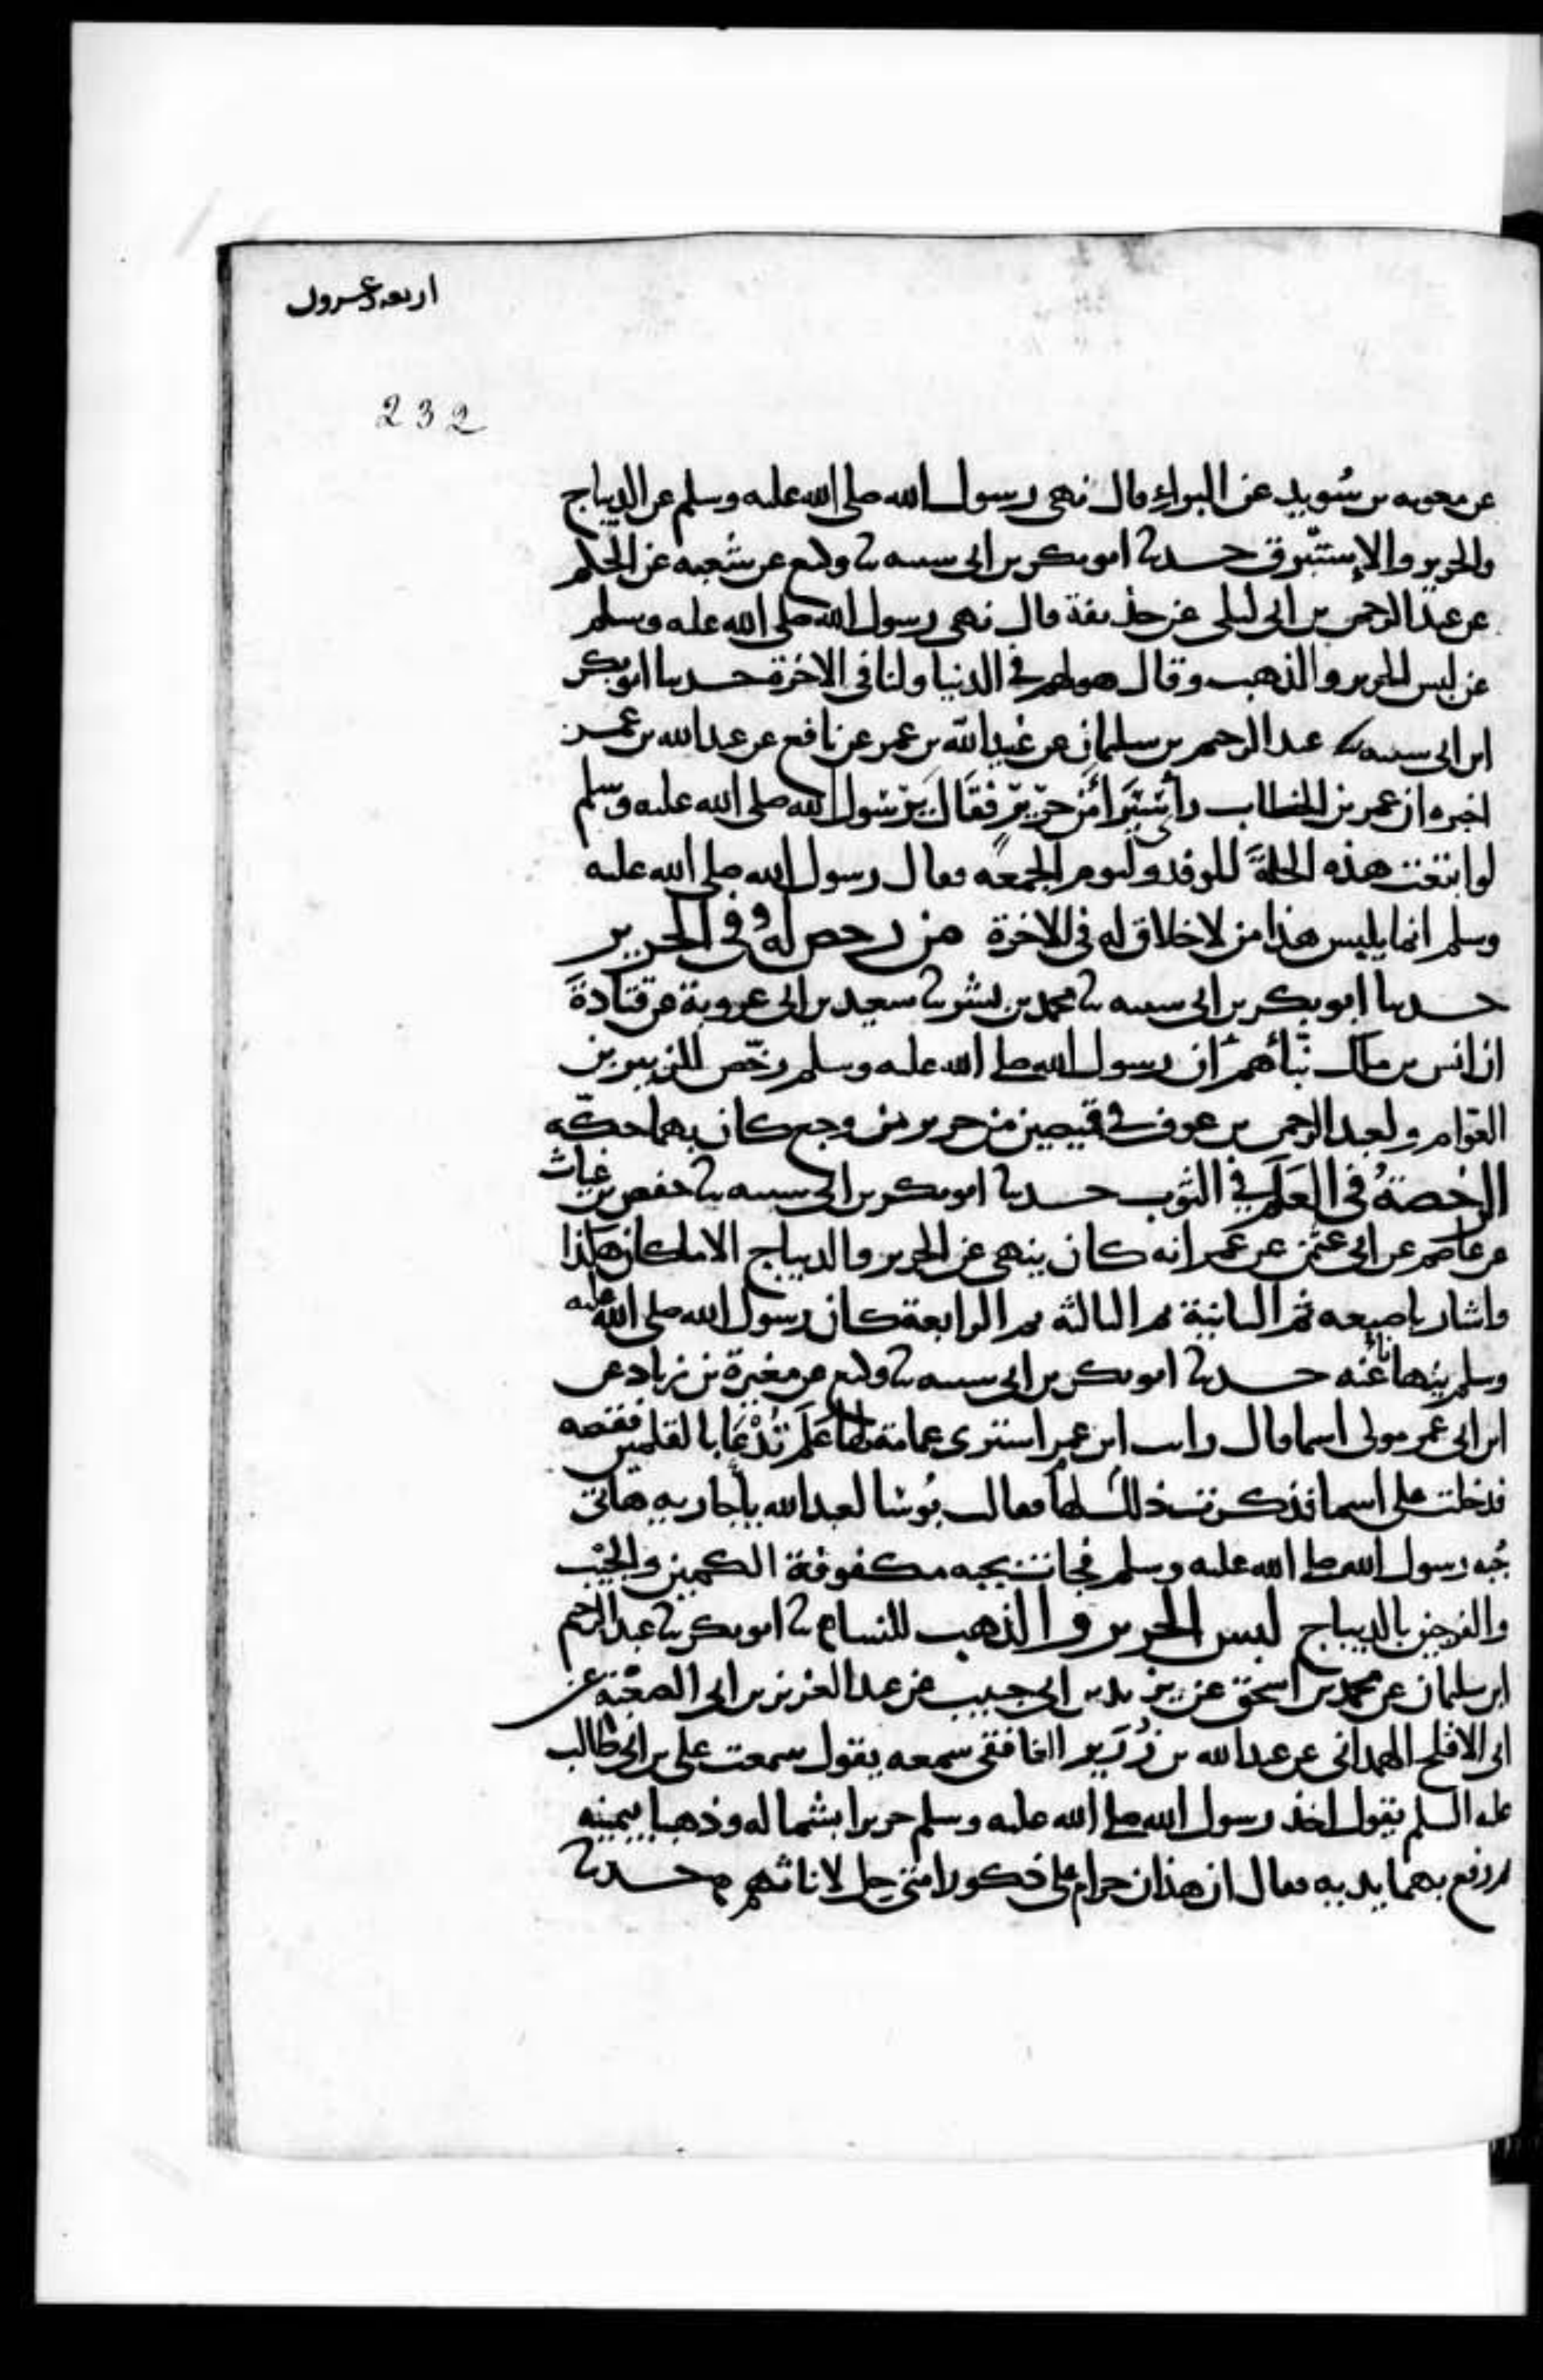 اربعه وعسرون
232
عن معويه بن سُويد عن البراءِ قال نهى رسول الله صلى الله عليه وسلم عن الديباج
والحرير والإستبرق حدثنا ابو بكر بن ابى شيبه ثنا وكيع عن شُعبه عن الحكم
عن عبد الرحمن بن ابى ليلى عن حذيفة قال نهى رسول الله صلى الله عليه وسلم
عن لبس الحرير والذهب وقال هو لهم في الدنيا ولنا فى الاخرة حدثنا ابو بكر
ابن ابى شيبه ثنا عبد الرحيم بن سليمان عن عُبيد الله بن عمر عن نافع عن عبد الله بن عمر
اخبره ان عمر بن الخطاب رأى سِيَرَاءَ من حرير فقال يرسول الله صلى الله عليه وسلم
لو ابتعت هذه الحلةَ للوفد وليوم الجمعه فقال رسول الله صلى الله عليه
وسلم انما يلبس هذا من لا خلاق له فى الاخرة من رخص لهُ فى الحرير
حدثنا ابو بكر بن ابى شيبه ثنا محمد بن بشر ثنا سعيد بن ابى عروبة عن قتادةَ
ان انس بن مالك نبّأهم ان رسول الله صلى الله عليه وسلم رخّص للزبير بن
العوّام ولعبد الرحمن بن عوف في قميصين من حرير من وجع كان بهما حكّه
الرخصةُ فى العَلَمِ في الثوب حدثنا ابو بكر بن ابى شيبه ثنا حفص بن غياث
عن عاصم عن ابى عثمن عن عمر انه كان ينهى عن الحرير والديباج الا ما كان هكذا
واشار باصبعه ثم الثانية ثم الثالثه ثم الرابعة كان رسول الله صلى الله عليه
وسلم ينهانا عنه حدثنا ابو بكر بن ابى شيبه ثنا وكيع عن مغيرة بن زياد عن
ابن ابى عمر مولى اسما قال رايت ابن عمر اشترى عمامة لها عَلَم فدْعَا بالقلمين فقصه
فدخلت على اسما فذكرت ذلك لها فقالت بُوسًا لعبد الله يا جاريه هاتى
جُبه رسول الله صلى الله عليه وسلم فجات بجبه مكفوفة الكمين والجَيْب
والفرجين بالديباج لبس الحرير والذهب للنساء ثنا ابو بكر ثنا عبد الرحيم
ابن سليمان عن محمد بن اسحق عن يزيد بن ابى حبيب عن عبد العزيز بن ابى الصعْبة عن
ابى الافلح الهمدانى عن عبد الله بن زُرَيْر الغافقى سمعه يقول سمعت على بن ابى طالب
عليه السلم يقول اخذ رسول الله صلى الله عليه وسلم حريرا بشماله وذهبا بيمينه
ثم رفع بهما يديه فقال ان هذان حرام على ذكور امتى حل لاناثهم حدثنا